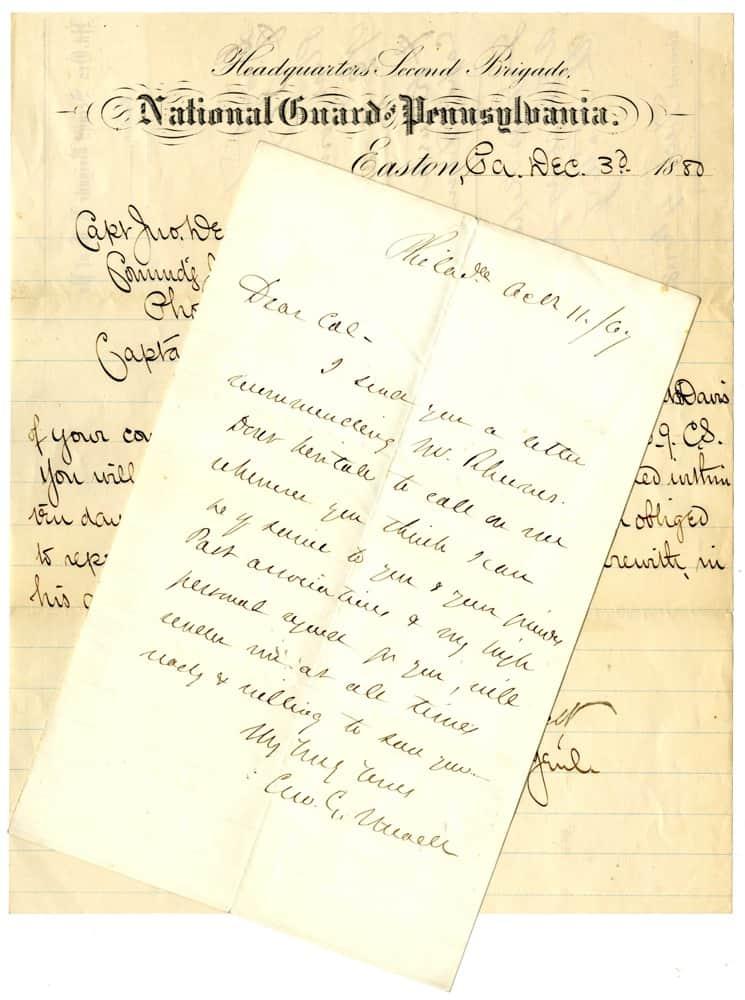 Headquarters Second Brigade,
National Guard of Pennsylvania.
Easton, Pa. Dec. 3d. 1880
Capt Jno. De
Comm'd'g
Pho
Capta
Davis
of your co
9. C.S.
You will
ed within
ten da
obliged
to rep
rewith, in
his
Genl.
Philada Oct 11./67
Dear Col-
I send you a letter
recommending Mr.
Dont hesitate to call on me
whenever you think I can
be of service to you & your friends
Past associations & my high
personal regard for you, will
render me at all times
ready & willing to serve you.
Very truly yours
Geo. G. Meade